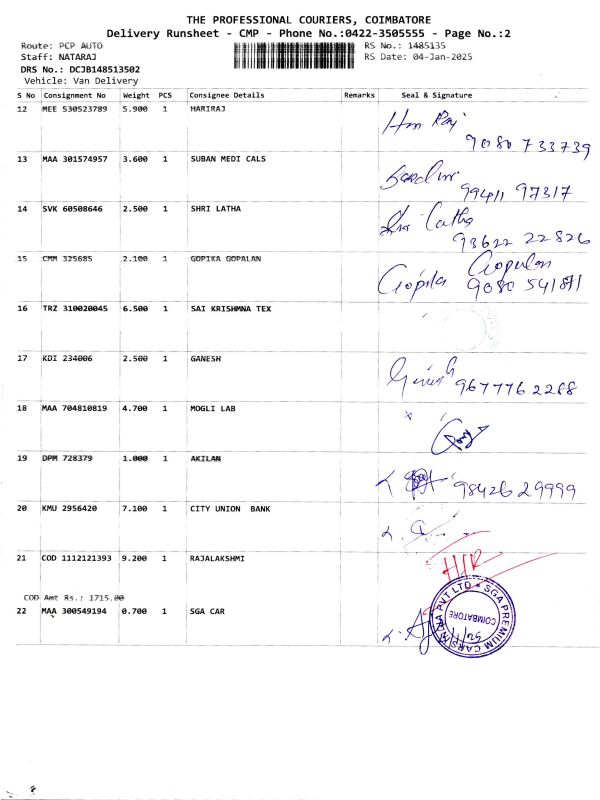 THE PROFESSIONAL COURIERS, COIMBATORE
Delivery Runsheet - CMP - Phone No.:0422-3505555 - Page No.:2
Route: PCP AUTO
RS No.: 1485135
Staff: NATARAJ
RS Date: 04-Jan-2025
DRS No.: DCJB148513502
Vehicle: Van Delivery
S No Consignment No Weight PCS Consignee Details Remarks Seal & Signature
12 MEE 530523789 5.900 1 HARIRAJ
Hari Raj
9080 733739
13 MAA 301574957 3.600 1 SUBAN MEDI CALS
99411 97317
14 SVK 60508646 2.500 1 SHRI LATHA
Latha
93622 22826
15 CMM 325685 2.100 1 GOPIKA GOPALAN
Gopika Gopalan
9080 541871
16 TRZ 310020045 6.500 1 SAI KRISHMNA TEX
17 KDI 234006 2.500 1 GANESH
9677762288
18 MAA 704810819 4.700 1 MOGLI LAB
19 DPM 728379 1.000 1 AKILAN
98426 29999
20 KMU 2956420 7.100 1 CITY UNION BANK
21 COD 1112121393 9.200 1 RAJALAKSHMI
COD Amt Rs.: 1715.00
22 MAA 300549194 0.700 1 SGA CAR
SGA PREMIUM CARS INDIA PVT LTD
COIMBATORE